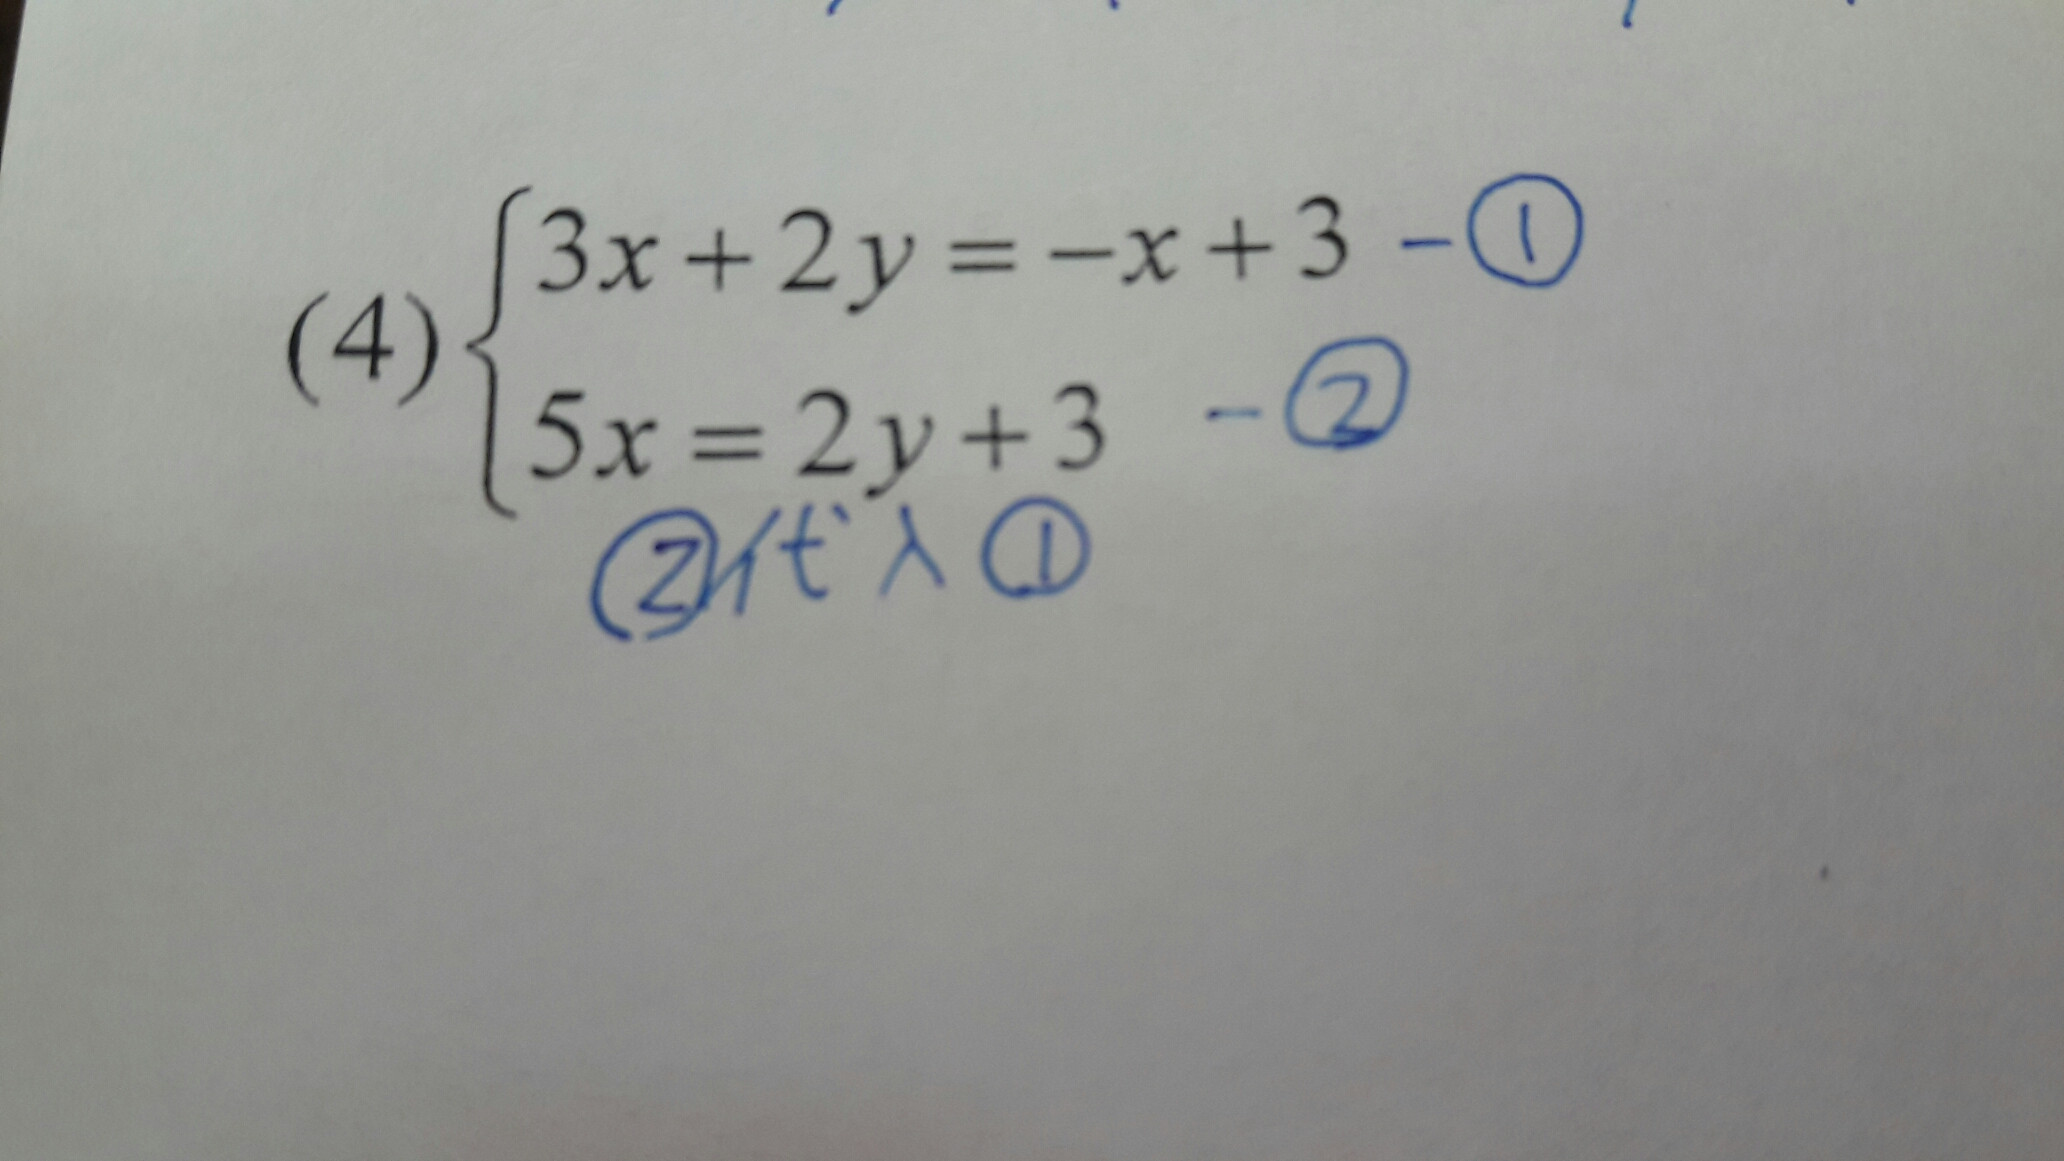 (4) { 3x + 2y = −x + 3 －①
5x = 2y + 3 －②
②代入①